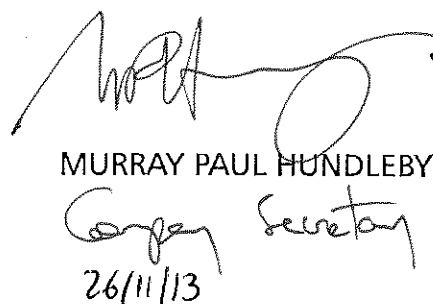 MURRAY PAUL HUNDLEBY
Company Secretary
26/11/13